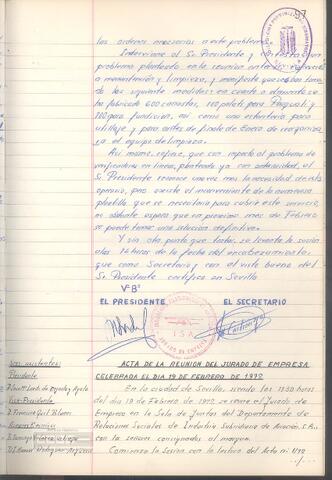 las ordenes necesarias a este problema.
Interviene el Sr. Presidente y
problema planteado en la reunion anterior
a manutención y limpieza, y manifiesta que se han toma-
do las siguientes medidas: en cuanto a
ha fabricado 600 canastas, 100 palets para Pasquali y
100 para fundicion, asi como una estanteria para
utillaje y para antes de finales de Enero de
el equipo de limpieza.
Asi mismo, refiere, que con respecto al problema de
verificadores en lineas, planteado ya con anterioridad, el
Sr. Presidente reconoce una vez mas la necesidad de esta
operario, pero existe el inconveniente de la numerosa
plantilla que se necesitaria para cubrir este servicio,
no obstante espera que en proximo mes de Febrero
se pueda tomar una solución definitiva.
Y sin otro punto que tratar, se levanta la sesión
a las 16 horas de la fecha del encabezamiento,
que como Secretario y con el visto bueno del
Sr. Presidente certifico en Sevilla
Vº Bº
EL PRESIDENTE EL SECRETARIO
ISA
Sres. asistentes
Presidente
Vice-Presidente
ACTA DE LA REUNION DEL JURADO DE EMPRESA
CELEBRADA EL DIA 19 DE FEBRERO DE 1972
En la ciudad de Sevilla, siendo las 13'30 horas
del dia 19 de Febrero de 1972, se reune el Jurado de
Empresa en la Sala de Juntas del Departamento de
Relaciones Sociales de Industria Subsidiaria de Aviación, S.A.,
con los señores consignados al margen.
Comienza la Sesión con la lectura del Acta nº